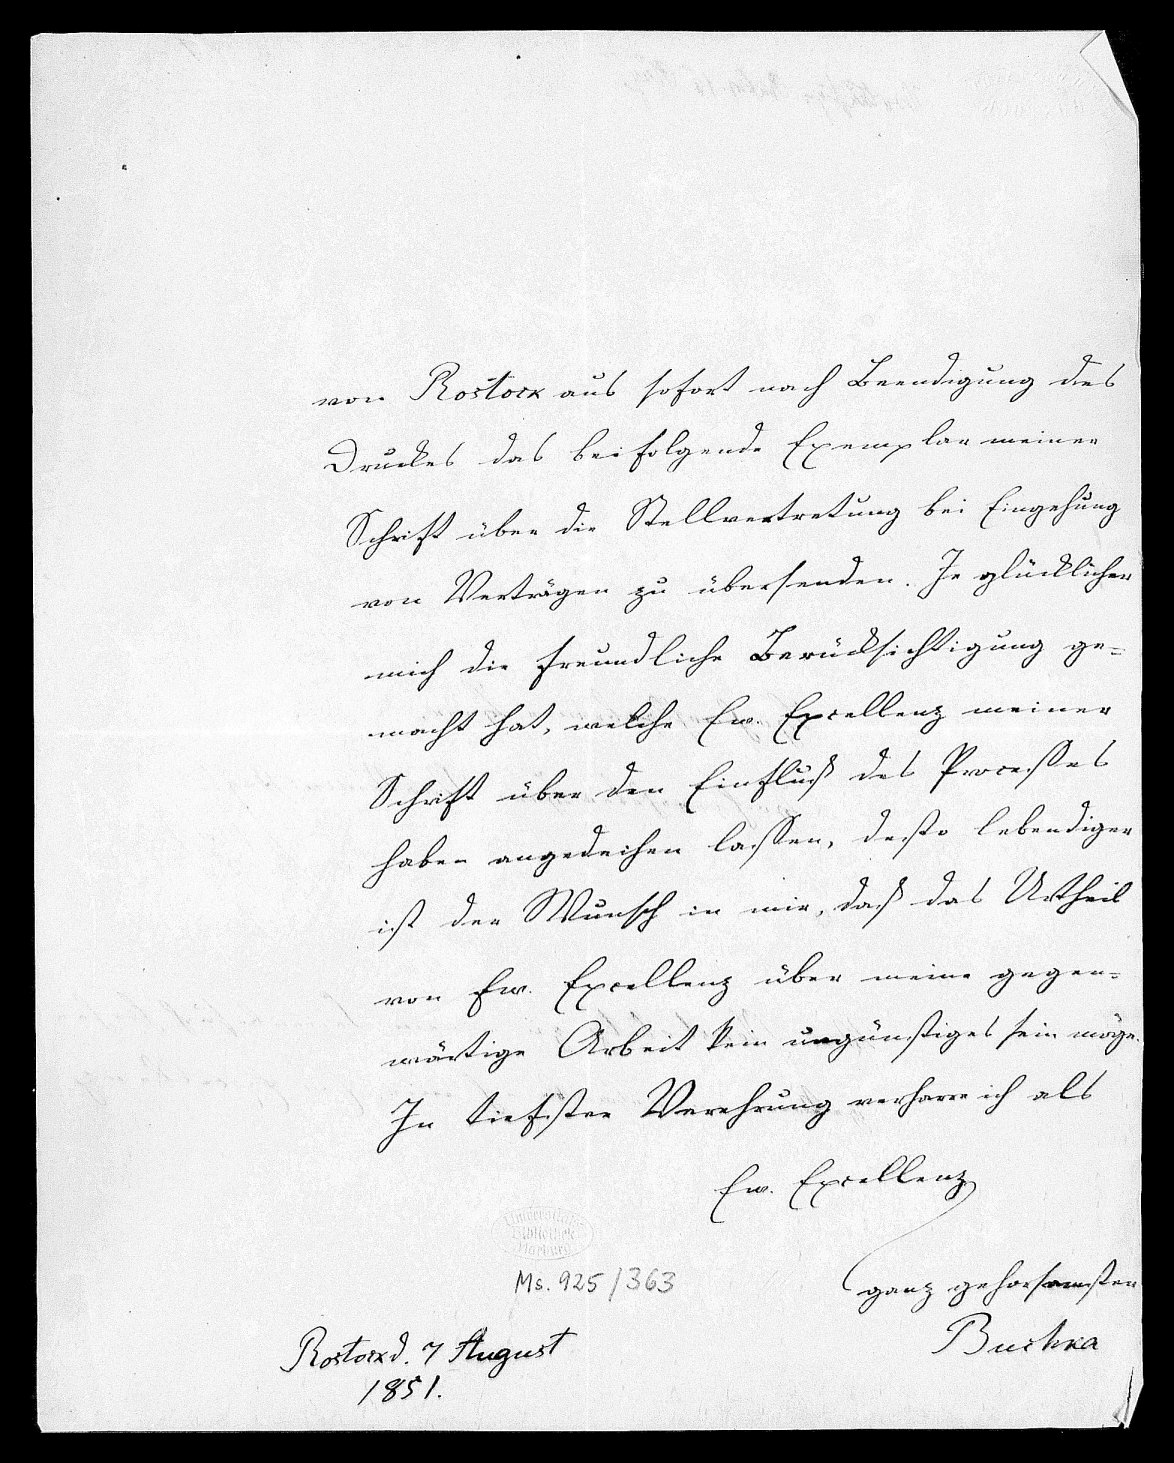 von Rostock aus sofort nach Beendigung des
Druckes das beifolgende Exemplar meiner
Schrift über die Stellvertretung bei Eingehung
von Verträgen zu übersenden. Je glücklicher
mich die freundliche Berücksichtigung ge=
macht hat, welche Ew. Excellenz meiner
Schrift über den Einfluß des Processes
haben angedeihen lassen, desto lebendiger
ist der Wunsch in mir, daß das Urtheil
von Ew. Excellenz über meine gegen=
wärtige Arbeit kein ungünstiges sein möge.
In tiefster Verehrung verharre ich als
Ew. Excellenz
Universitäts
Bibliothek
Marburg
Ms. 925/363
ganz gehorsamster
Buchka
Rostock d. 7 August
1851.